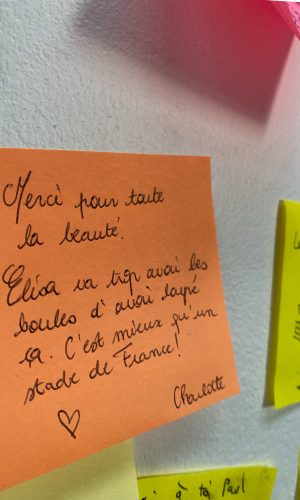 Merci pour toute
la beauté.
Elisa va trop avoi les
boules d'avoi loupé
ça. C'est mieux qu'un
stade de France!
Charlotte
♡
à toi Paul